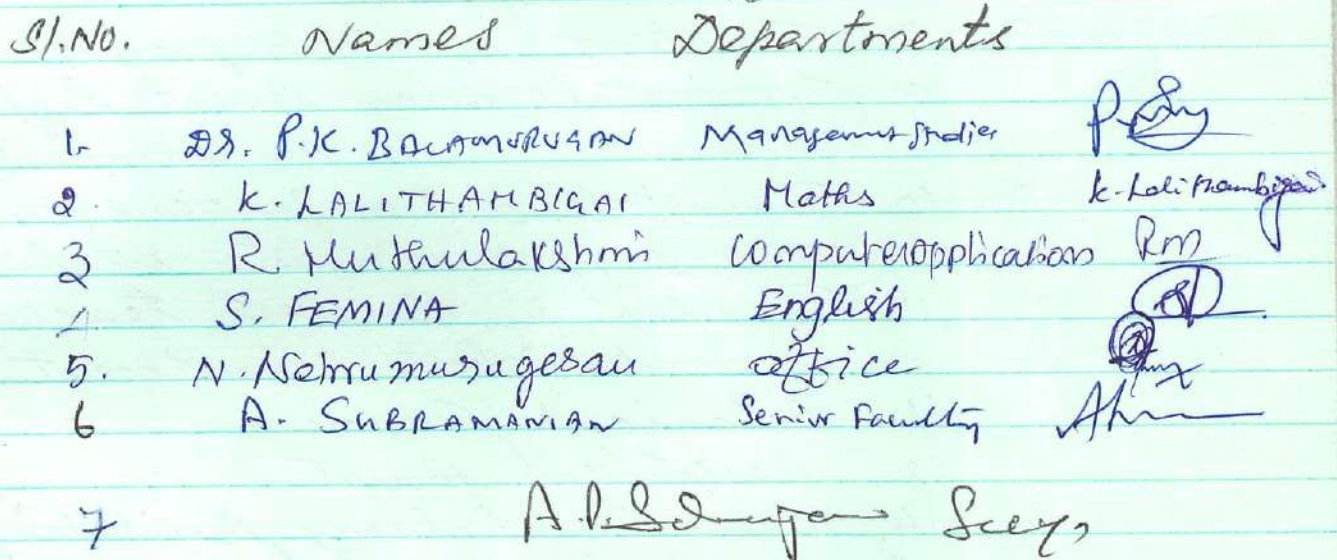 Sl.No. Names Departments
1. DR. P.K. BALAMURUGAN Management Studies
2. K. LALITHAMBIGAI Maths K. Lalithambigai
3 R. Muthulakshmi Computerapplications RM
4. S. FEMINA English
5. N. Nehrumurugesan office
6 A. SUBRAMANIAN Senior Faculty
7 Secy,